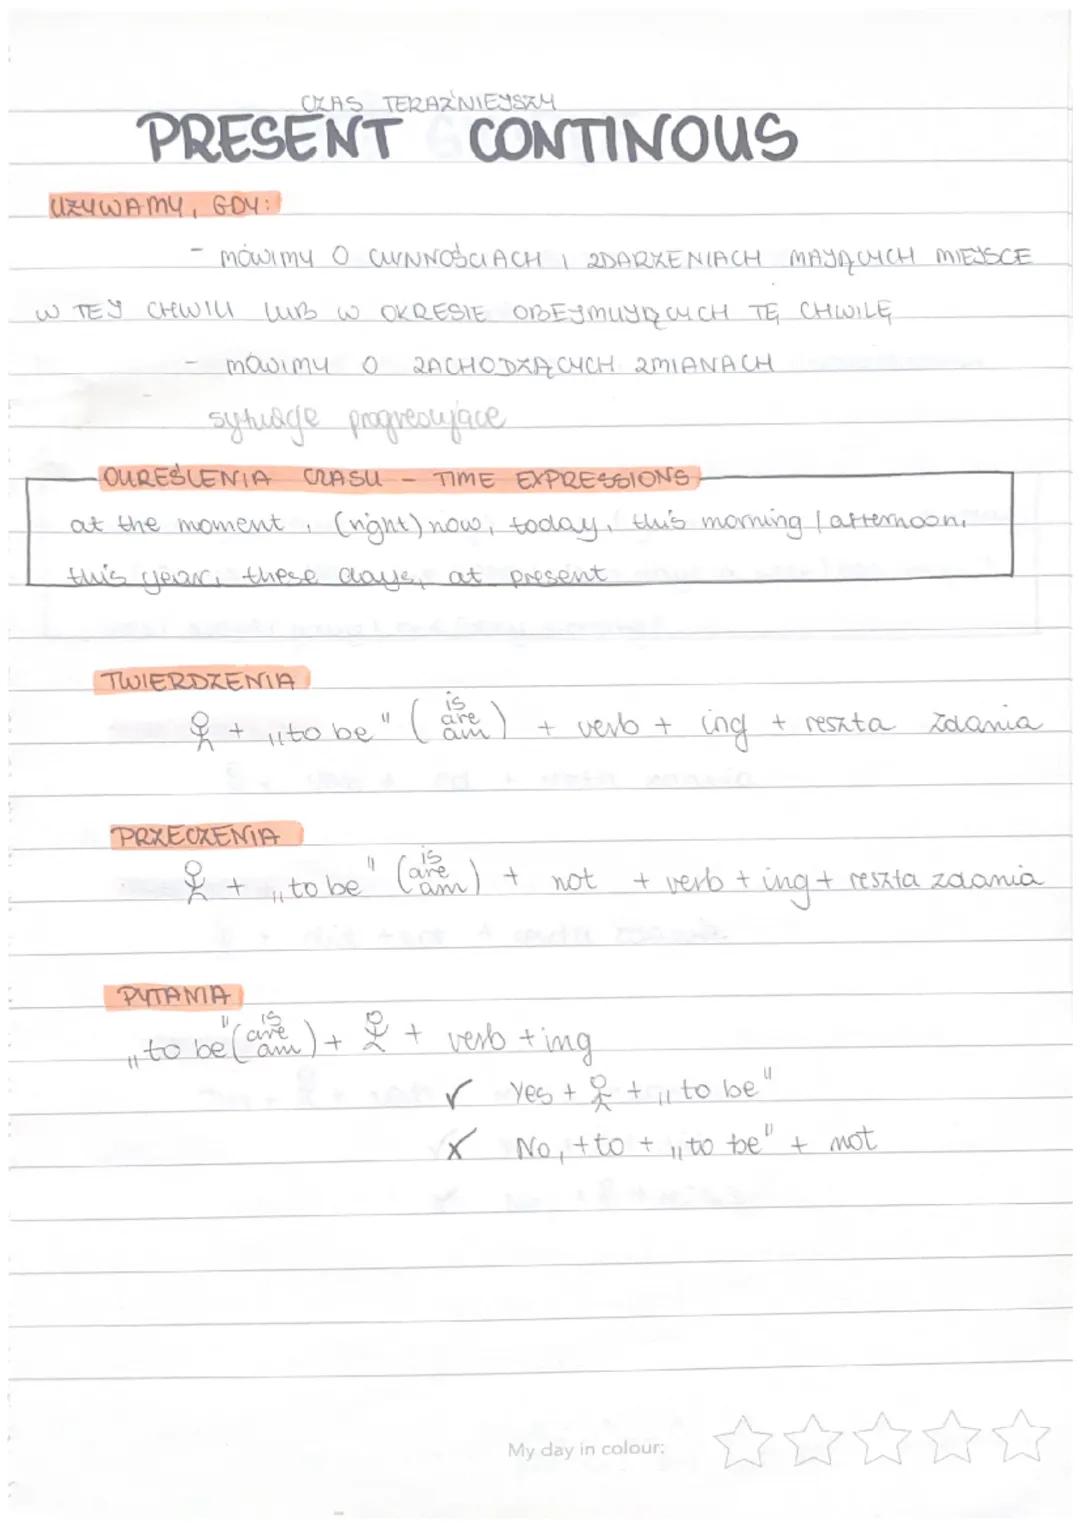 CZAS TERAŹNIEJSZY
PRESENT CONTINOUS
UŻYWAMY, GDY:
- MÓWIMY O CZYNNOŚCIACH I ZDARZENIACH MAJĄCYCH MIEJSCE
W TEJ CHWILI LUB W OKRESIE OBEJMUJĄCYCH TĘ CHWILĘ
- MÓWIMY O ZACHODZĄCYCH ZMIANACH
sytuacje progresujące
OKREŚLENIA CZASU - TIME EXPRESSIONS
at the moment, (right) now, today, this morning / afternoon,
this year, these days, at present
TWIERDZENIA
+ „to be" (is are am) + verb + ing + reszta zdania
PRZECZENIA
+ „to be" (is are am) + not + verb + ing + reszta zdania
PYTANIA
„to be" (is are am) + + verb + ing
✓ Yes + + „to be"
X No, + to + „to be" + not
My day in colour: